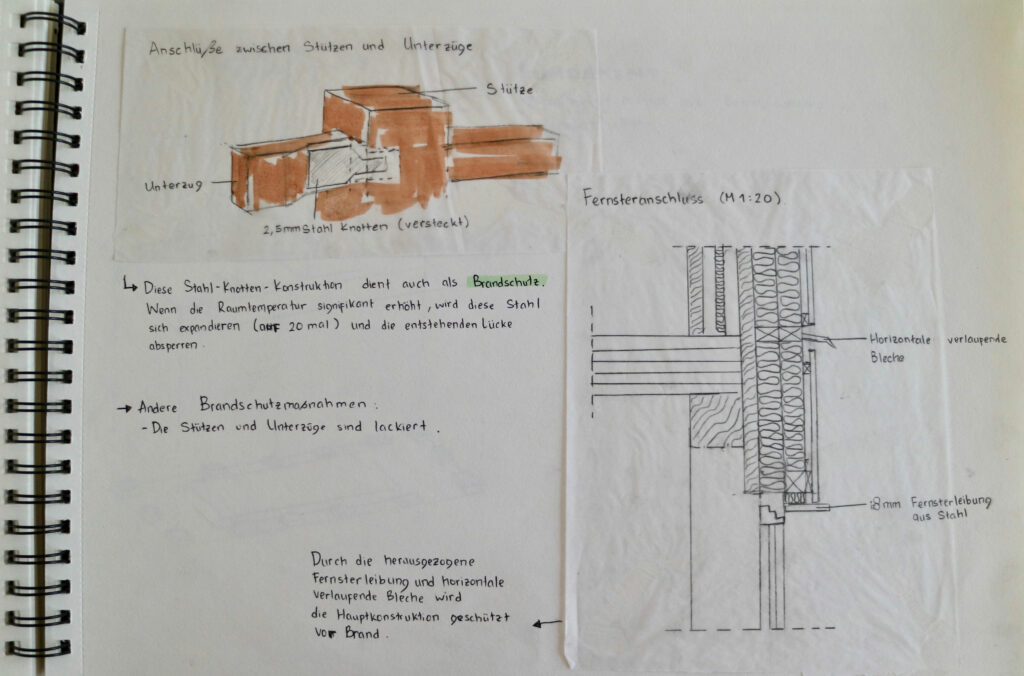 Anschlüße zwischen Stützen und Unterzüge
Stütze
Unterzug
2,5mm Stahl Knotten (versteckt)
Diese Stahl-Knotten-Konstruktion dient auch als Brandschutz.
Wenn die Raumtemperatur signifikant erhöht, wird diese Stahl
sich expandieren (auf 20 mal) und die entstehenden Lücke
absperren.
→ Andere Brandschutzmaßnahmen:
- Die Stützen und Unterzüge sind lackiert.
Durch die herausgezogene
Fernsterleibung und horizontale
verlaufende Bleche wird
die Hauptkonstruktion geschützt
vor Brand.
Fernsteranschluss (M 1:20)
Horizontale verlaufende
Bleche
18mm Fernsterleibung
aus Stahl